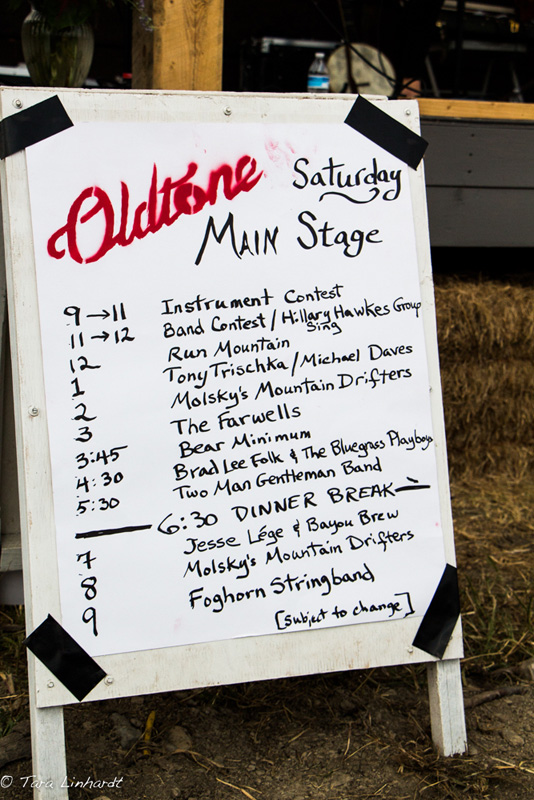 Oldtone
Saturday
Main Stage
9→11 Instrument Contest
11→12 Band Contest / Hillary Hawkes Group Sing
12 Run Mountain
1 Tony Trischka / Michael Daves
2 Molsky's Mountain Drifters
3 The Farwells
3:45 Bear Minimum
4:30 Brad Lee Folk & The Bluegrass Playboys
5:30 Two Man Gentleman Band
6:30 DINNER BREAK
7 Jesse Lége & Bayou Brew
8 Molsky's Mountain Drifters
9 Foghorn Stringband
[subject to change]
© Tara Linhardt